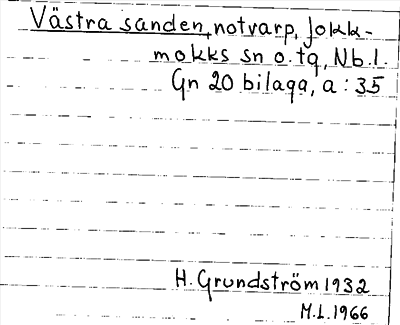 Västra sanden, notvarp, Jokk-
mokks sn o. tg, Nb. l.
Gn 20 bilaga, a : 35
H. Grundström 1932
M.L. 1966